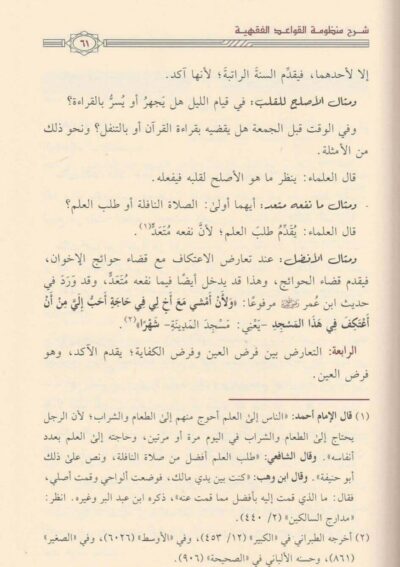 شرح منظومة القواعد الفقهية
٦١
إلا لأحدهما، فيقدِّم السنةَ الراتبةَ؛ لأنها آكد.
ومثال الأصلح للقلب: في قيام الليل هل يَجهرُ أو يُسرُّ بالقراءة؟
وفي الوقت قبل الجمعة هل يقضيه بقراءة القرآن أو بالتنفل؟ ونحو ذلك
من الأمثلة.
قال العلماء: ينظر ما هو الأصلح لقلبه فيفعله.
ومثال ما نفعه متعد: أيهما أولىٰ: الصلاة النافلة أو طلب العلم؟
قال العلماء: يُقَدَّمُ طلبَ العلم؛ لأنَّ نفعَه مُتَعَدٍّ(١).
ومثال الأفضل: عند تعارض الاعتكاف مع قضاء حوائج الإخوان،
فيقدم قضاء الحوائج، وهذا قد يدخل أيضًا فيما نفعه مُتَعَدٍّ، وقد وَرَدَ في
حديث ابن عُمر ﷺ مرفوعًا: «وَلَأَنْ أَمْشي مَعَ أخٍ لِي فِي حَاجَةٍ أَحَبُّ إِلَيَّ مِنْ أَنْ
أَعْتَكِفَ فِي هَذَا المَسْجِدِ -يَعْنِي: مَسْجِدَ المَدِينَةِ- شَهْرًا»(٢).
الرابعة: التعارض بين فرض العين وفرض الكفاية؛ يقدم الآكد، وهو
فرض العين.
(١) قال الإمام أحمد: «الناس إلىٰ العلم أحوج منهم إلىٰ الطعام والشراب؛ لأن الرجل
يحتاج إلىٰ الطعام والشراب في اليوم مرة أو مرتين، وحاجته إلىٰ العلم بعدد
أنفاسه». وقال الشافعي: «طلب العلم أفضل من صلاة النافلة، ونص علىٰ ذلك
أبو حنيفة». وقال ابن وهب: «كنت بين يدي مالك، فوضعت ألواحي وقمت أصلي،
فقال: ما الذي قمت إليه بأفضل مما قمت عنه»، ذكره ابن عبد البر وغيره. انظر:
«مدارج السالكين» (٢/ ٤٤٠).
(٢) أخرجه الطبراني في «الكبير» (١٢/ ٤٥٣)، وفي «الأوسط» (٦٠٢٦)، وفي «الصغير»
(٨٦١)، وحسنه الألباني في «الصحيحة» (٩٠٦).